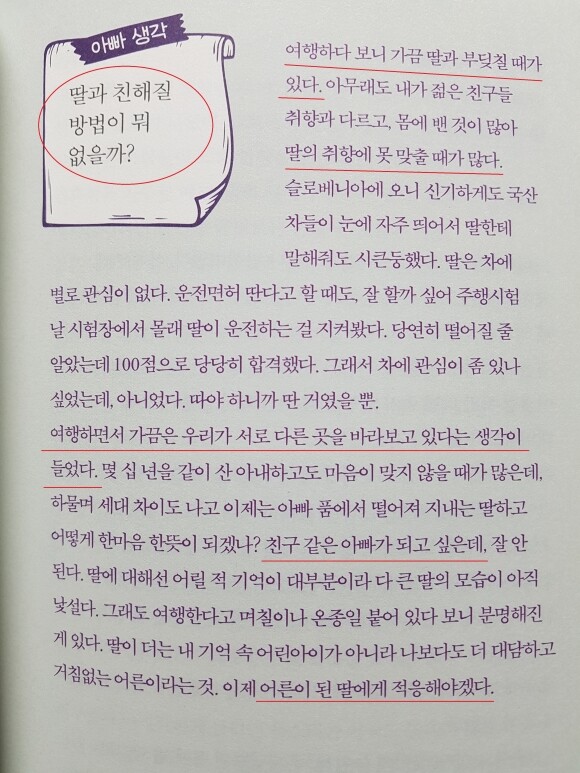 아빠 생각
딸과 친해질
방법이 뭐
없을까?
여행하다 보니 가끔 딸과 부딪칠 때가
있다. 아무래도 내가 젊은 친구들
취향과 다르고, 몸에 밴 것이 많아
딸의 취향에 못 맞출 때가 많다.
슬로베니아에 오니 신기하게도 국산
차들이 눈에 자주 띄어서 딸한테
말해줘도 시큰둥했다. 딸은 차에
별로 관심이 없다. 운전면허 딴다고 할 때도, 잘 할까 싶어 주행시험
날 시험장에서 몰래 딸이 운전하는 걸 지켜봤다. 당연히 떨어질 줄
알았는데 100점으로 당당히 합격했다. 그래서 차에 관심이 좀 있나
싶었는데, 아니었다. 따야 하니까 딴 거였을 뿐.
여행하면서 가끔은 우리가 서로 다른 곳을 바라보고 있다는 생각이
들었다. 몇 십 년을 같이 산 아내하고도 마음이 맞지 않을 때가 많은데,
하물며 세대 차이도 나고 이제는 아빠 품에서 떨어져 지내는 딸하고
어떻게 한마음 한뜻이 되겠나? 친구 같은 아빠가 되고 싶은데, 잘 안
된다. 딸에 대해선 어릴 적 기억이 대부분이라 다 큰 딸의 모습이 아직
낯설다. 그래도 여행한다고 며칠이나 온종일 붙어 있다 보니 분명해진
게 있다. 딸이 더는 내 기억 속 어린아이가 아니라 나보다도 더 대담하고
거침없는 어른이라는 것. 이제 어른이 된 딸에게 적응해야겠다.